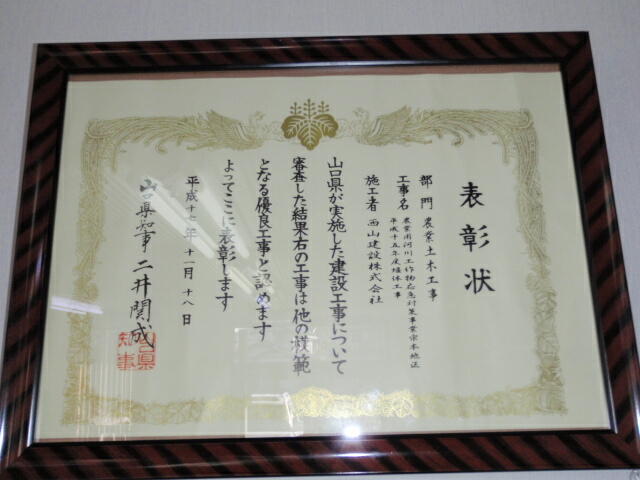 表彰状
部門 農業土木工事
工事名 農業用河川工作物応急対策事業宗本地区
平成十五年度堰体工事
施工者 西山建設株式会社
山口県が実施した建設工事について
審査した結果右の工事は他の模範
となる優良工事と認めます
よってここに表彰します
平成十七年十一月十八日
山口県知事 二井関成
山口県
知事